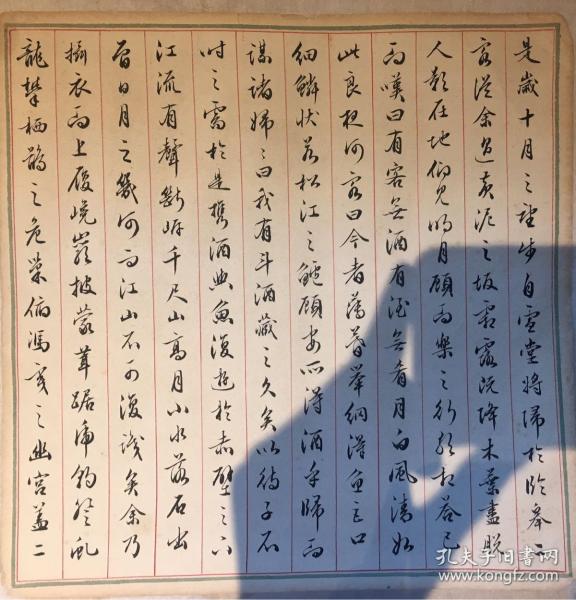 是歲十月之望步自雪堂將歸於臨皋二
客從余過黃泥之坂霜露既降木葉盡脫
人影在地仰見明月顧而樂之行歌相答已
而嘆曰有客無酒有酒無肴月白風清如
此良夜何客曰今者薄暮舉網得魚巨口
細鱗狀若松江之鱸顧安所得酒乎歸而
謀諸婦婦曰我有斗酒藏之久矣以待子不
時之需於是攜酒與魚復遊於赤壁之下
江流有聲斷岸千尺山高月小水落石出
曾日月之幾何而江山不可復識矣余乃
攝衣而上履巉巖披蒙茸踞虎豹登虬
龍攀栖鶻之危巢俯馮夷之幽宮蓋二
孔夫子旧书网
www.kongfz.com